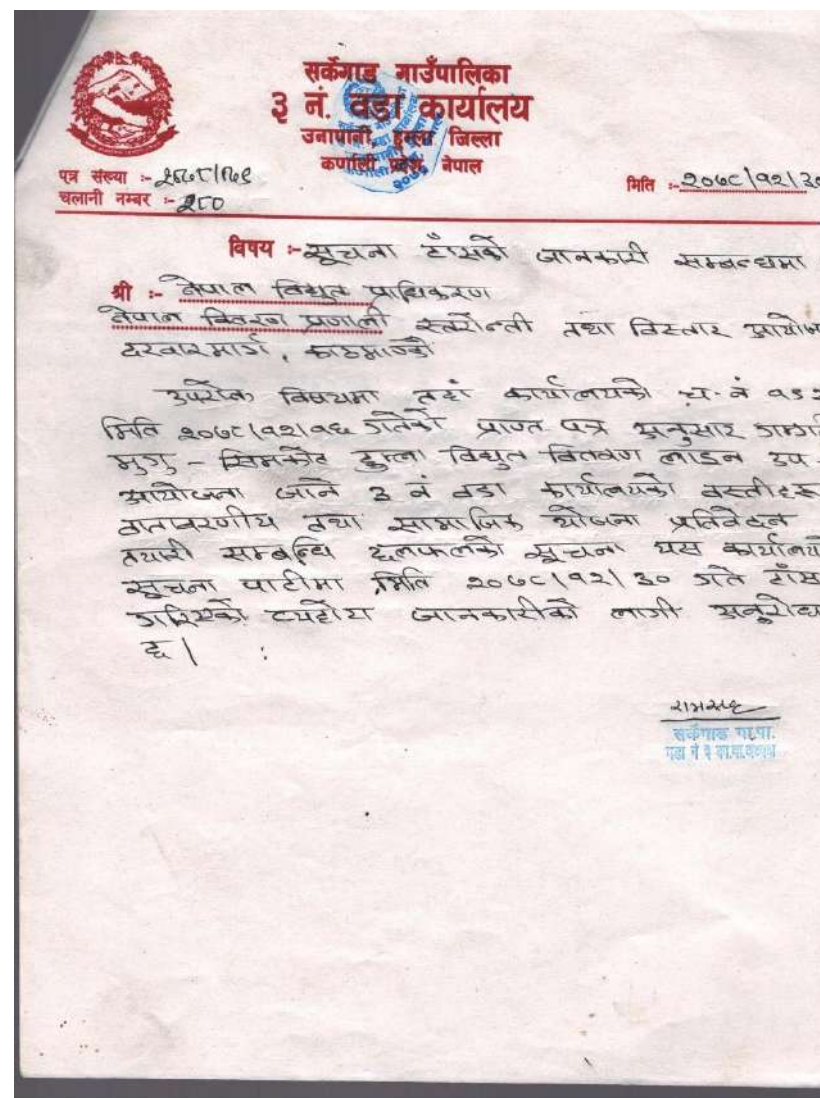 सर्केगाड गाउँपालिका
३ नं. वडा कार्यालय
उनापानी, हुम्ला जिल्ला
कर्णाली प्रदेश, नेपाल
पत्र संख्या :-
चलानी नम्बर :- २८०
मिति :- २०७८/१२/३०
विषय :- सूचना टाँसको जानकारी सम्बन्धमा
श्री :- नेपाल विद्युत प्राधिकरण
नेपाल वितरण प्रणाली स्तरोन्ती तथा विस्तार
दरवारमार्ग, काठमाण्डौ
उपरोक्त विषयमा तहाँ कार्यालयको च.नं
मिति २०७८/१२/१६ गतेको प्राप्त पत्र अनुसार
मुगु - सिमकोट हुम्ला विद्युत वितरण लाइन उप -
आयोजना जाने ३ नं वडा कार्यालयको
वातावरणीय तथा सामाजिक योजना प्रतिवेदन
तयारी सम्बन्धि छलफलको सूचना यस
सूचना पाटीमा मिति २०७८/१२/३० गते टाँस
गरिएको व्यहोरा जानकारीको लागी
छ।
सर्केगाड गा.पा.